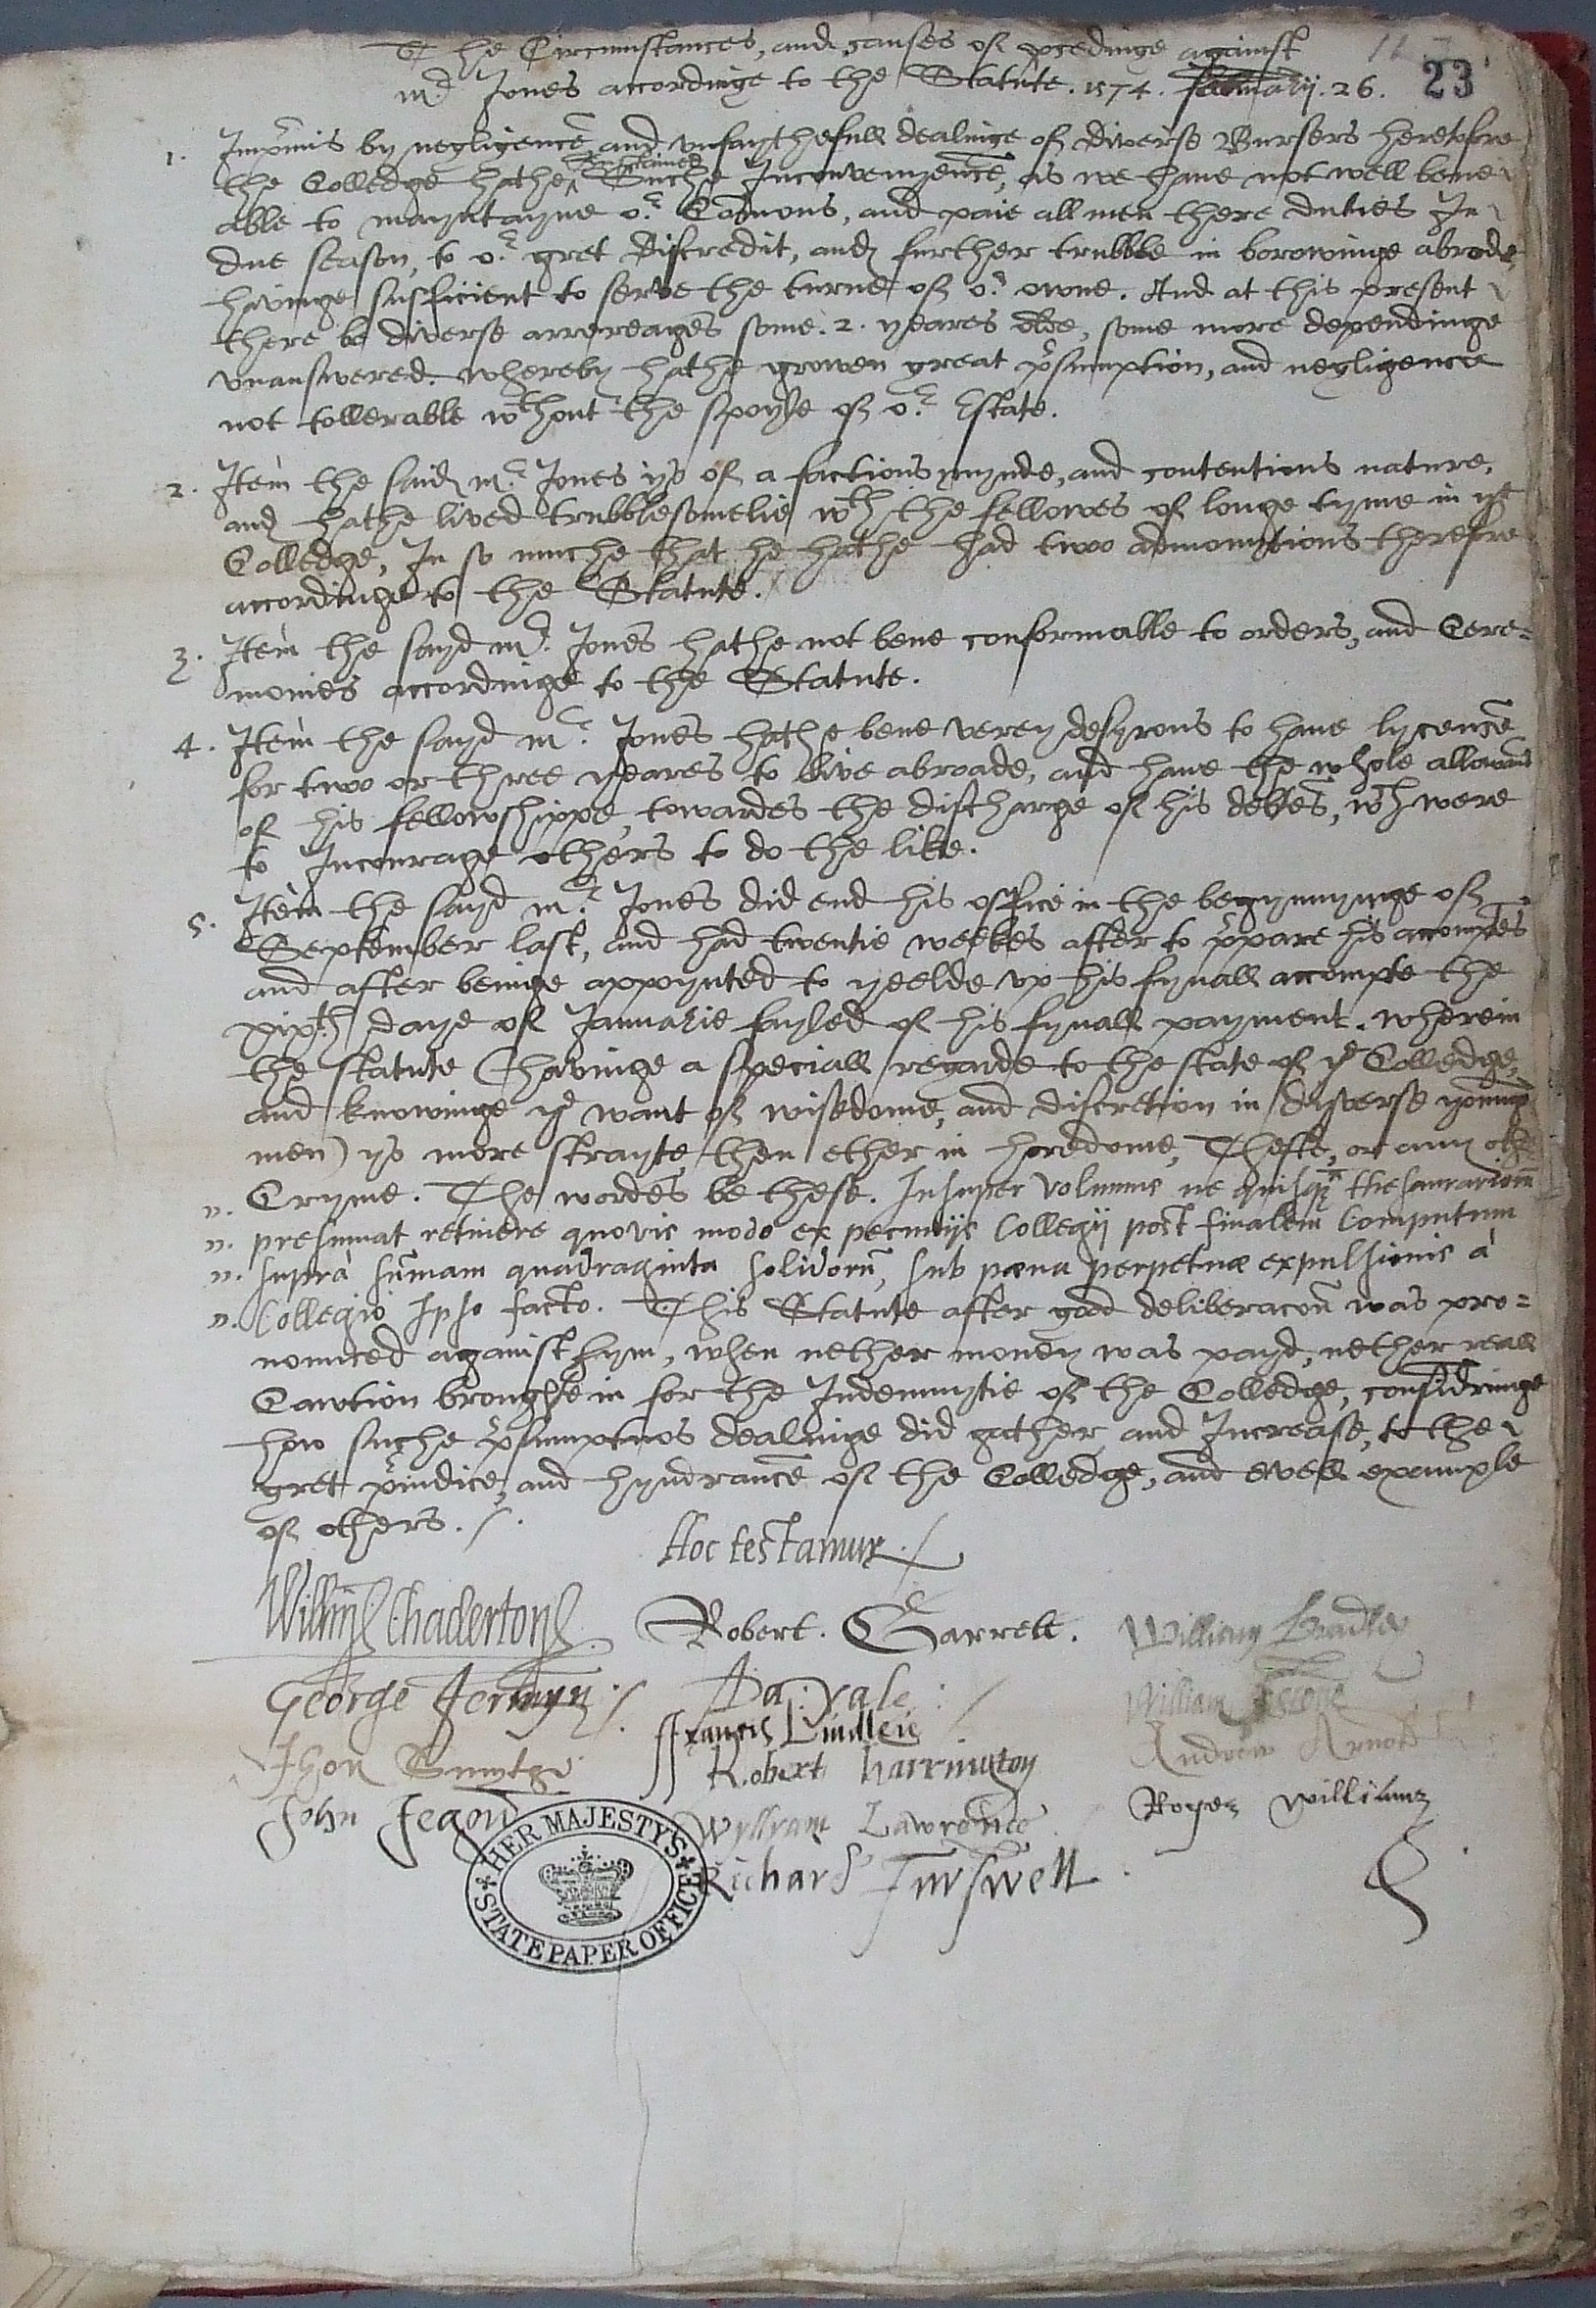 The Circumstances, and causes of pcedinge against
23
mr Jones accordinge to the Statute. 1574. februarij. 26.
1. Imprimis by negligence, and vnfaythefull dealinge of diverse Bursers heretofre
the Colledge hathe ^ Susteined Suche Inconvenyence, as we have not well bene
able to mayntayne or Comons, and paie all men there duties In
due season, to or gret discredit, and further trubble in borowinge abrode,
havinge sufficient to serve the turne of or owne. And at this present
there be diverse arrereages some .2. yeares olde, some more dependinge
vnanswered. whereby hathe growen great psumption, and negligence
not tollerable wthout the spoyle of or Estate.
2. Item the said mr Jones ys of a factious mynde, and contentious nature,
and hathe lived trubblesomelie wth the fellowes of longe tyme in ye
Colledge, In so muche that he hathe had twoo admonitions therefre
accordinge to the Statute.
3. Item the sayd mr Jones hathe not bene conformable to orders, and Cere=
monies accordinge to the Statute.
4. Item the sayd mr Jones hathe bene verey desyrous to have lycence
for two or three yeares to live abroade, and have the whole allowanc
of his fellowshippe, towardes the discharge of his debtes, wch were
to Incourage others to do the like.
5. Item the sayd mr Jones did end his office in the begynnynge of
September last, and had twentie weekes after to ppare his accomptes
and after beinge appoynted to yeelde vp his fynall accompte the
xixth daye of Januarie fayled of his fynall payment. wherein
the statute (havinge a speciall regarde to the state of ye Colledge,
and knowinge ye want of wisedome, and discretion in dyverse younge
men) ys more strayte then ether in horedome, Thefte, or any other
". Cryme. The wordes be these. Insuper volumus ne quisqz thesaurariorum
". presumat retinere quovis modo ex pecunijs Collegij post finalem Computum
". supra sumam quadraginta solidorum, sub pæna perpetuæ expulsionis a
". Collegio Ipso facto. This Statute after good deliberacon was pro=
nounced against hym, when nether money was payd, nether reall
Cawtion broughte in for the Indemnytie of the Colledge, considringe
how suche psumptuos dealinge did gather and Increase, to the
gret piudice, and hyndrance of the Colledge, and evell example
of others. /.
Hoc testamur. /
Willm Chaderton
Robert. Garrett.
William Bradley
George Jermyn. /.
Da: yale: /
William
ffrancis Lindley
Andrew Arnold
Jhon
Robert harrington
John Jegon
Wyllyam Lawrence
Roger williams
Richard
HER MAJESTY'S STATE PAPER OFFICE